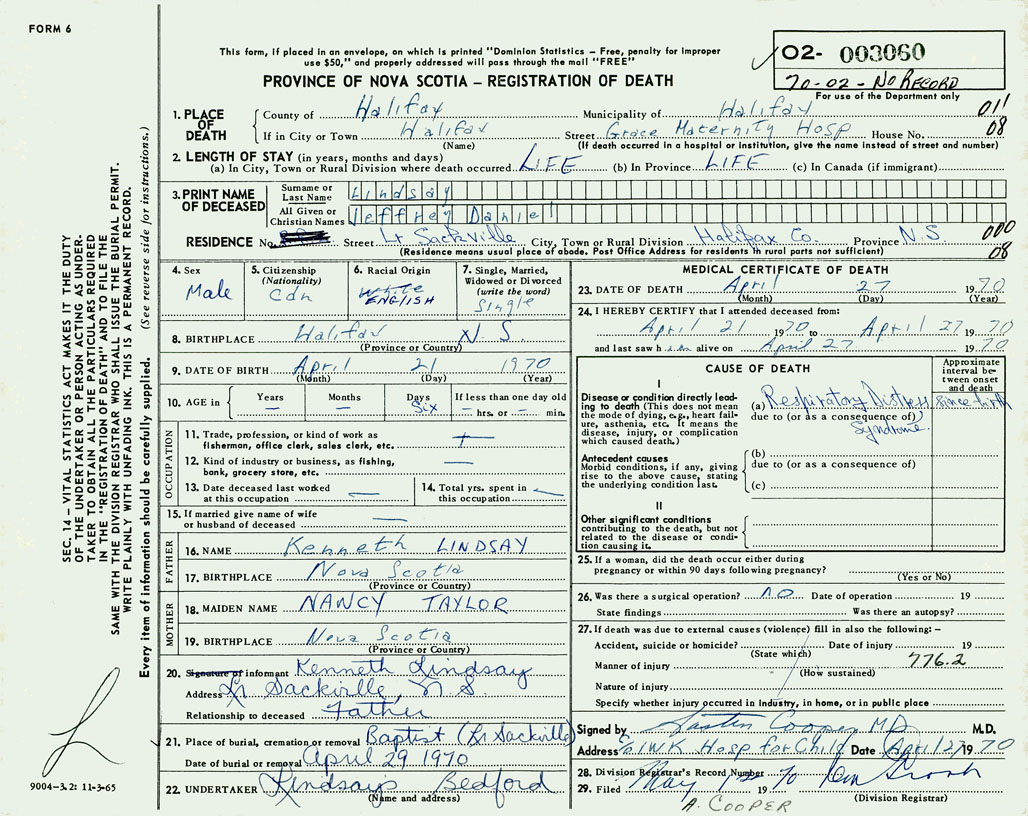 FORM 6
This form, if placed in an envelope, on which is printed "Dominion Statistics – Free, penalty for improper
use $50," and properly addressed will pass through the mail "FREE"
PROVINCE OF NOVA SCOTIA – REGISTRATION OF DEATH
O2- 003060
70-02 - No RECORD
For use of the Department only
1. PLACE OF DEATH
County of Halifax Municipality of Halifax 01'
If in City or Town Halifax Street Grace Maternity Hosp House No. 08
(Name) (If death occurred in a hospital or institution, give the name instead of street and number)
2. LENGTH OF STAY (in years, months and days)
(a) In City, Town or Rural Division where death occurred LIFE (b) In Province LIFE (c) In Canada (if immigrant)
3. PRINT NAME OF DECEASED
Surname or Last Name Lindsay
All Given or Christian Names Jeffrey Daniel
RESIDENCE No. Street Lr Sackville City, Town or Rural Division Halifax Co. Province N.S. 000
(Residence means usual place of abode. Post Office Address for residents in rural parts not sufficient) 08
4. Sex
Male
5. Citizenship
(Nationality)
Cdn
6. Racial Origin
White
ENGLISH
7. Single, Married,
Widowed or Divorced
(write the word)
Single
8. BIRTHPLACE Halifax N.S
(Province or Country)
9. DATE OF BIRTH April 21 1970
(Month) (Day) (Year)
10. AGE in Years – Months – Days Six If less than one day old – hrs. or – min.
OCCUPATION
11. Trade, profession, or kind of work as
fisherman, office clerk, sales clerk, etc.
12. Kind of industry or business, as fishing,
bank, grocery store, etc.
13. Date deceased last worked
at this occupation
14. Total yrs. spent in
this occupation
15. If married give name of wife
or husband of deceased
FATHER
16. NAME Kenneth LINDSAY
17. BIRTHPLACE Nova Scotia
(Province or Country)
MOTHER
18. MAIDEN NAME NANCY TAYLOR
19. BIRTHPLACE Nova Scotia
(Province or Country)
20. Signature of informant Kenneth Lindsay
Address Lr Sackville, N.S.
Relationship to deceased Father
21. Place of burial, cremation or removal Baptist (Lr Sackville)
Date of burial or removal April 29 1970
22. UNDERTAKER Lindsays Bedford
(Name and address)
MEDICAL CERTIFICATE OF DEATH
23. DATE OF DEATH April 27 1970
(Month) (Day) (Year)
24. I HEREBY CERTIFY that I attended deceased from:
April 21 1970 to April 27 1970
and last saw him alive on April 27 1970
CAUSE OF DEATH
Approximate
interval be-
tween onset
and death
I
Disease or condition directly lead-
ing to death (This does not mean
the mode of dying, e.g., heart fail-
ure, asthenia, etc. It means the
disease, injury, or complication
which caused death.)
(a) Respiratory Distress since birth
due to (or as a consequence of)
Syndrome
Antecedent causes
Morbid conditions, if any, giving
rise to the above cause, stating
the underlying condition last.
(b)
due to (or as a consequence of)
(c)
II
Other significant conditions
contributing to the death, but not
related to the disease or condi-
tion causing it.
25. If a woman, did the death occur either during
pregnancy or within 90 days following pregnancy?
(Yes or No)
26. Was there a surgical operation? no Date of operation 19
State findings Was there an autopsy?
27. If death was due to external causes (violence) fill in also the following: –
Accident, suicide or homicide? Date of injury 19
(State which)
Manner of injury 776.2
(How sustained)
Nature of injury
Specify whether injury occurred in Industry, in home, or in public place
Signed by Cooper MD M.D.
Address IWK Hosp for Child Date April 27 1970
28. Division Registrar's Record Number
29. Filed May 1970
(Division Registrar)
A. COOPER
SEC. 14 – VITAL STATISTICS ACT MAKES IT THE DUTY
OF THE UNDERTAKER OR PERSON ACTING AS UNDER-
TAKER TO OBTAIN ALL THE PARTICULARS REQUIRED
IN THE "REGISTRATION OF DEATH" AND TO FILE THE
SAME WITH THE DIVISION REGISTRAR WHO SHALL ISSUE THE BURIAL PERMIT.
WRITE PLAINLY WITH UNFADING INK. THIS IS A PERMANENT RECORD.
Every item of information should be carefully supplied. (See reverse side for instructions.)
9004-3.2: 11-3-65